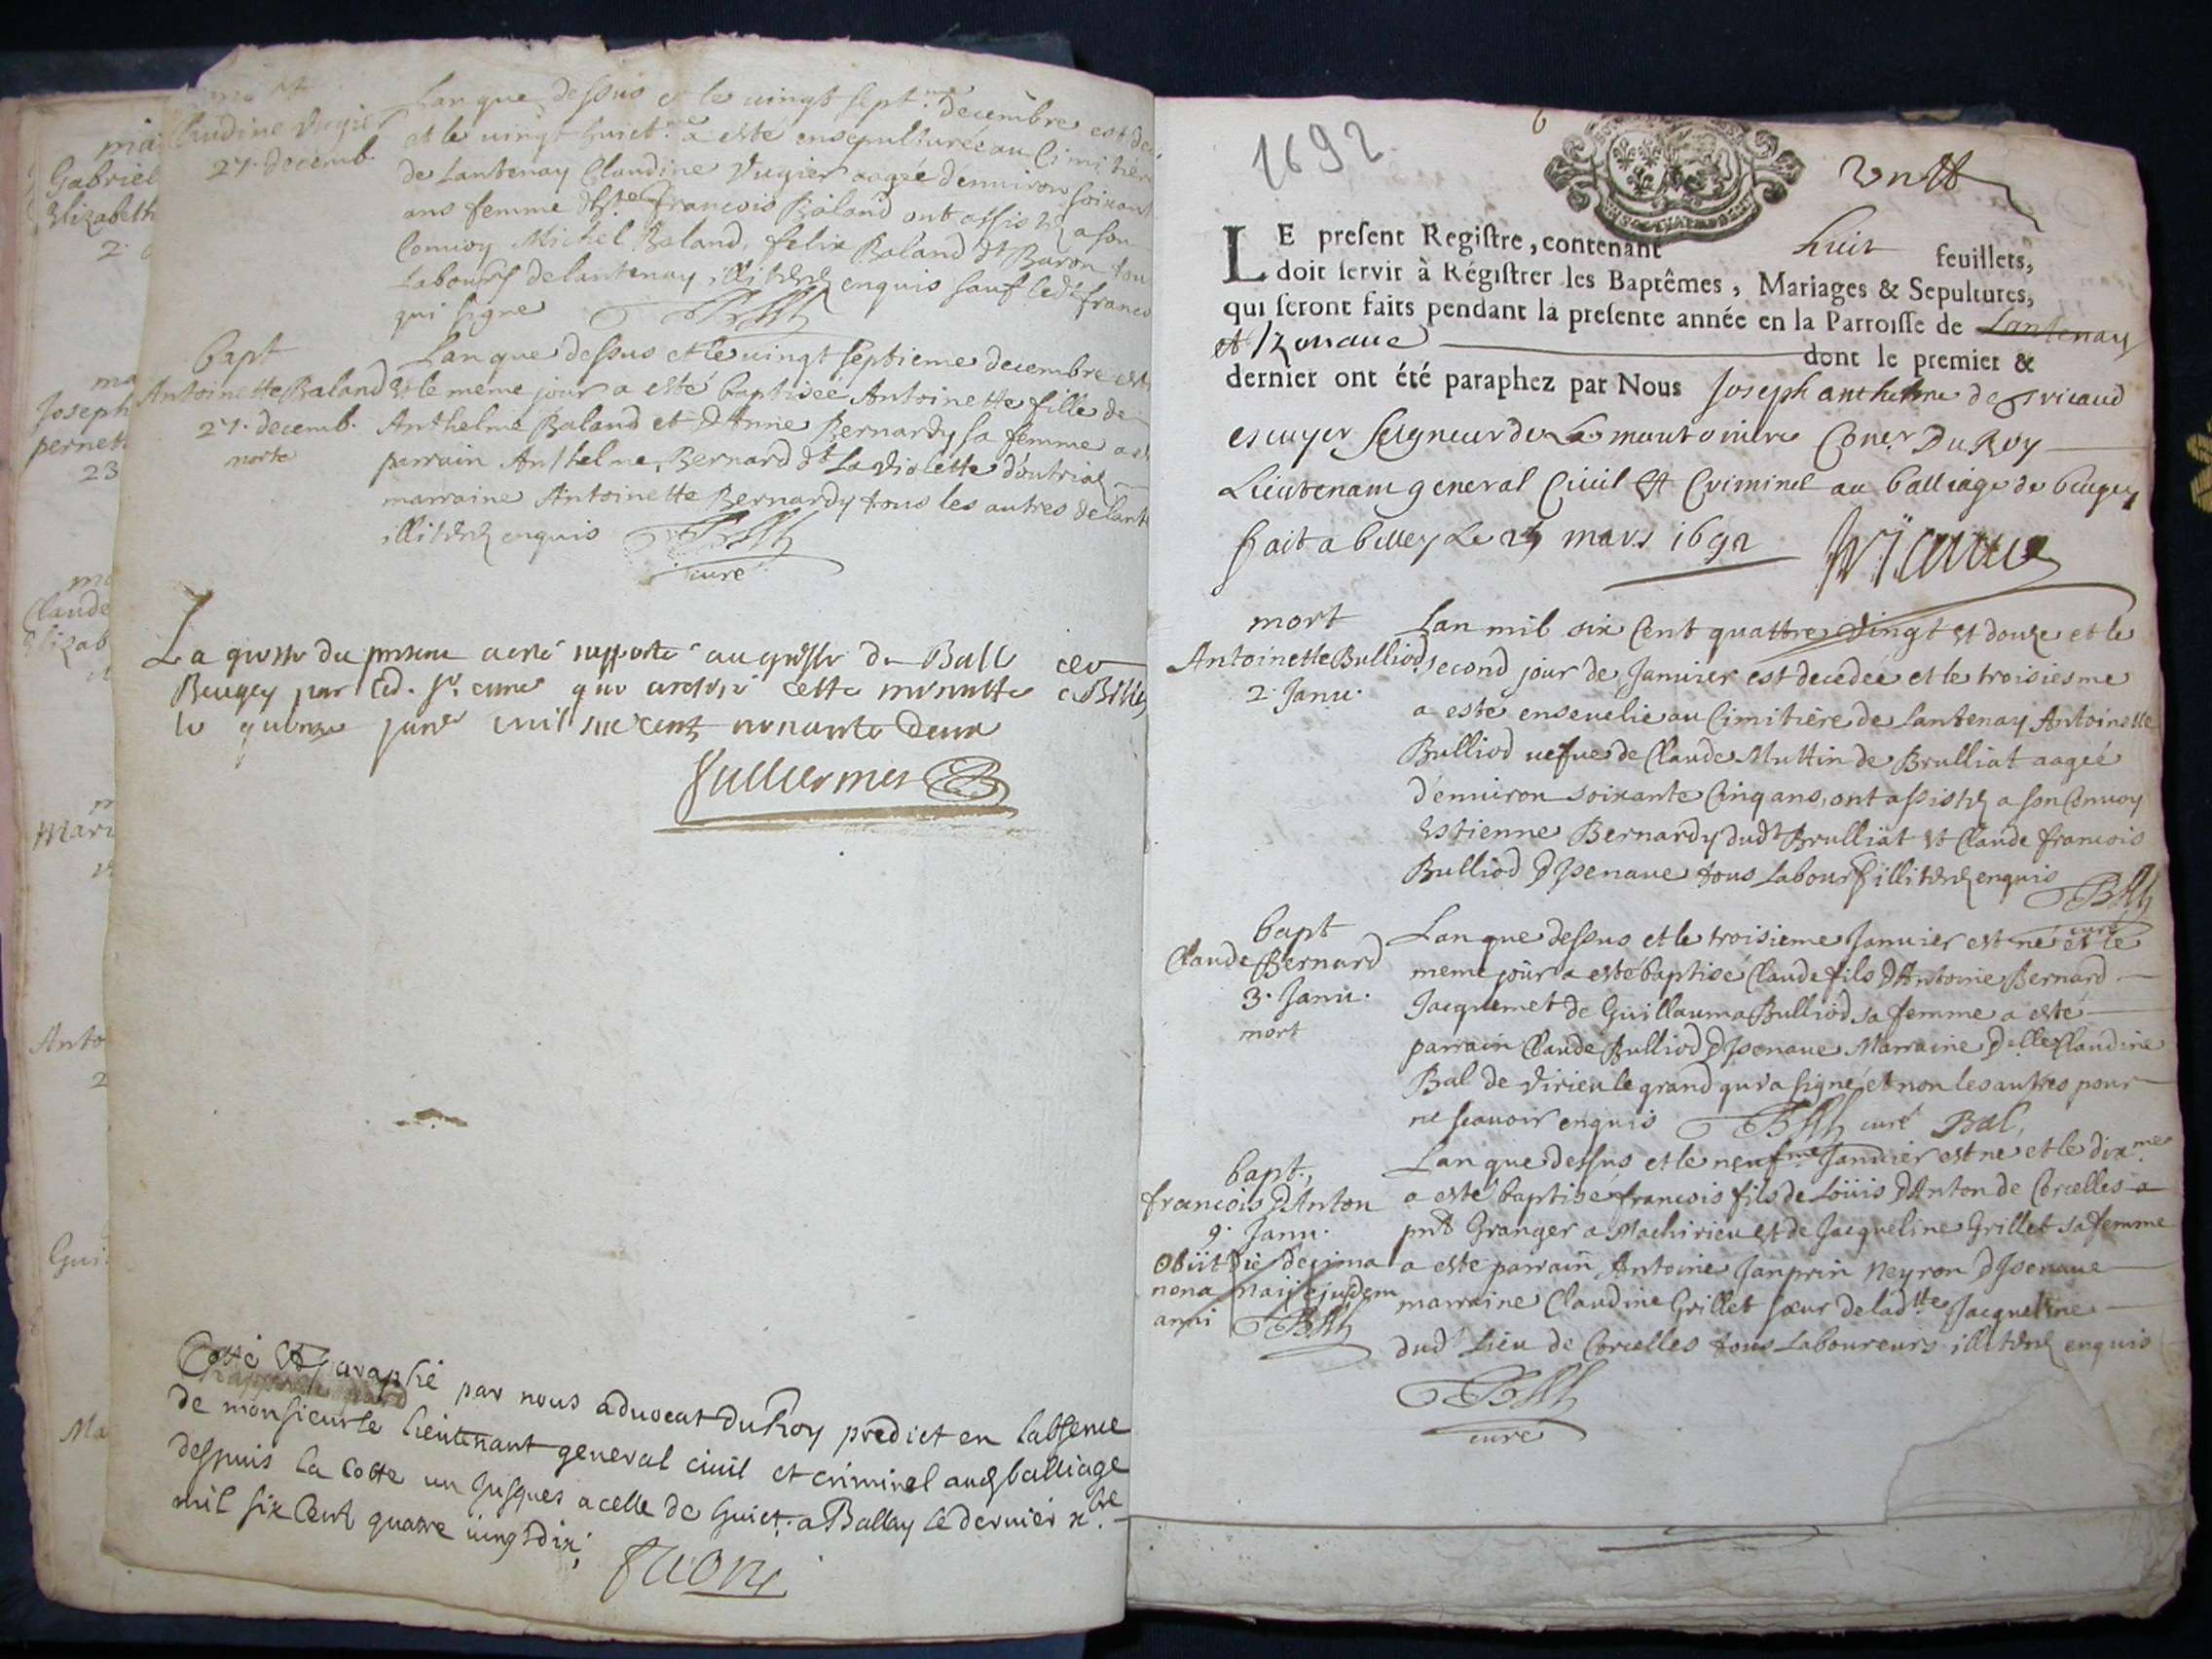 mort
Claudine Vugier
27. decemb.
Lan que dessus et le vingt sept.me decembre est
et le vingt huict.me a esté ensepulturée au Cimitière
de Lantenay Claudine Vugier aagée denuiron soixante
ans femme François Baland ont assisté a son
Conuoy Michel Baland, felix Baland dt Baron tous
Labours de lantenay illiterez enquis sauf led.t franco
qui signe
bapt
Antoinette Baland
27. decemb.
morte
Lan que dessus et le vingt septieme decembre est
et le meme jour a esté baptisée Antoinette fille de
Anthelme Baland et d'Anne Bernardy sa femme a esté
parrain Anthelme Bernard dt La Violette d'outriaz
marraine Antoinette Bernardy tous les autres de lante
illiterez enquis
curé
La grosse du present a esté rapporté au greffe du Ball
Beugey par led. sr. curé qui a retiré cette minutte
le quinze janer mil six cents nonante deux
Guillermet
Cotté et paraphé par nous aduocat du Roy predict en labsence
de monsieur le lieutenant general ciuil et criminel aud balliage
despuis la cotte un jusques a celle de huict. a Belley le dernier xbre
mil six cent quatre uingt dix;
ma
Gabriel
Elizabeth
2.
ma
Joseph
pernet
23
Claude
Elizab
Mari
Anto
2
Gui
Ma
1692
LE present Registre, contenant huit feuillets,
doit servir à Régistrer les Baptêmes, Mariages & Sepultures,
qui seront faits pendant la presente année en la Parroisse de Lantenay
et Izenaue dont le premier &
dernier ont été paraphez par Nous Joseph anthelme de Tricaud
escuyer seigneur de La montoniere Coner. Du Roy
Lieutenant general Ciuil et Criminel au balliage de beugey
fait a belley Le 25 mars 1692
Tricaud
mort
Antoinette Bulliod
2. Janu.
Lan mil six Cent quattre Vingt et douze et le
second jour de Januier est decedée et le troisiesme
a esté enseuelie au Cimitière de Lantenay Antoinette
Bulliod uefue de Claude Muttin de Brulliat aagée
d'enuiron soixante Cinq ans, ont assisté a son Conuoy
Estienne Bernardy dudt Brulliat et Claude francois
Bulliod d'Isenaue tous Labours illiterez enquis
curé
bapt
Claude Bernard
3. Janu.
mort
Lan que dessus et le troisieme Januier est né et le
meme jour a esté baptisé Claude fils d'Antoine Bernard
Jacquemet de Guillauma Bulliod sa femme a esté
parrain Claude Bulliod d'Isenaue Marraine Delle Claudine
Bal de Virieu le grand qui a signé, et non les autres pour
ne scauoir enquis curé Bal,
bapt.,
francois d'Anton
9. Janu.
Obiit die decima
nona maii ejusdem
anni
Lan que dessus et le neufme Januier est ne et le dixme.
a esté baptisé francois fils de Loüis d'Anton de Corcelles a
pnt Granger a Machirieu et de Jacqueline Grillet sa femme
a esté parrain Antoine Janprin Neyron d'Isenaue
marraine Claudine Grillet sœur de ladtte Jacqueline
dudt Lieu de Corcelles tous Laboureurs illiterez enquis
curé